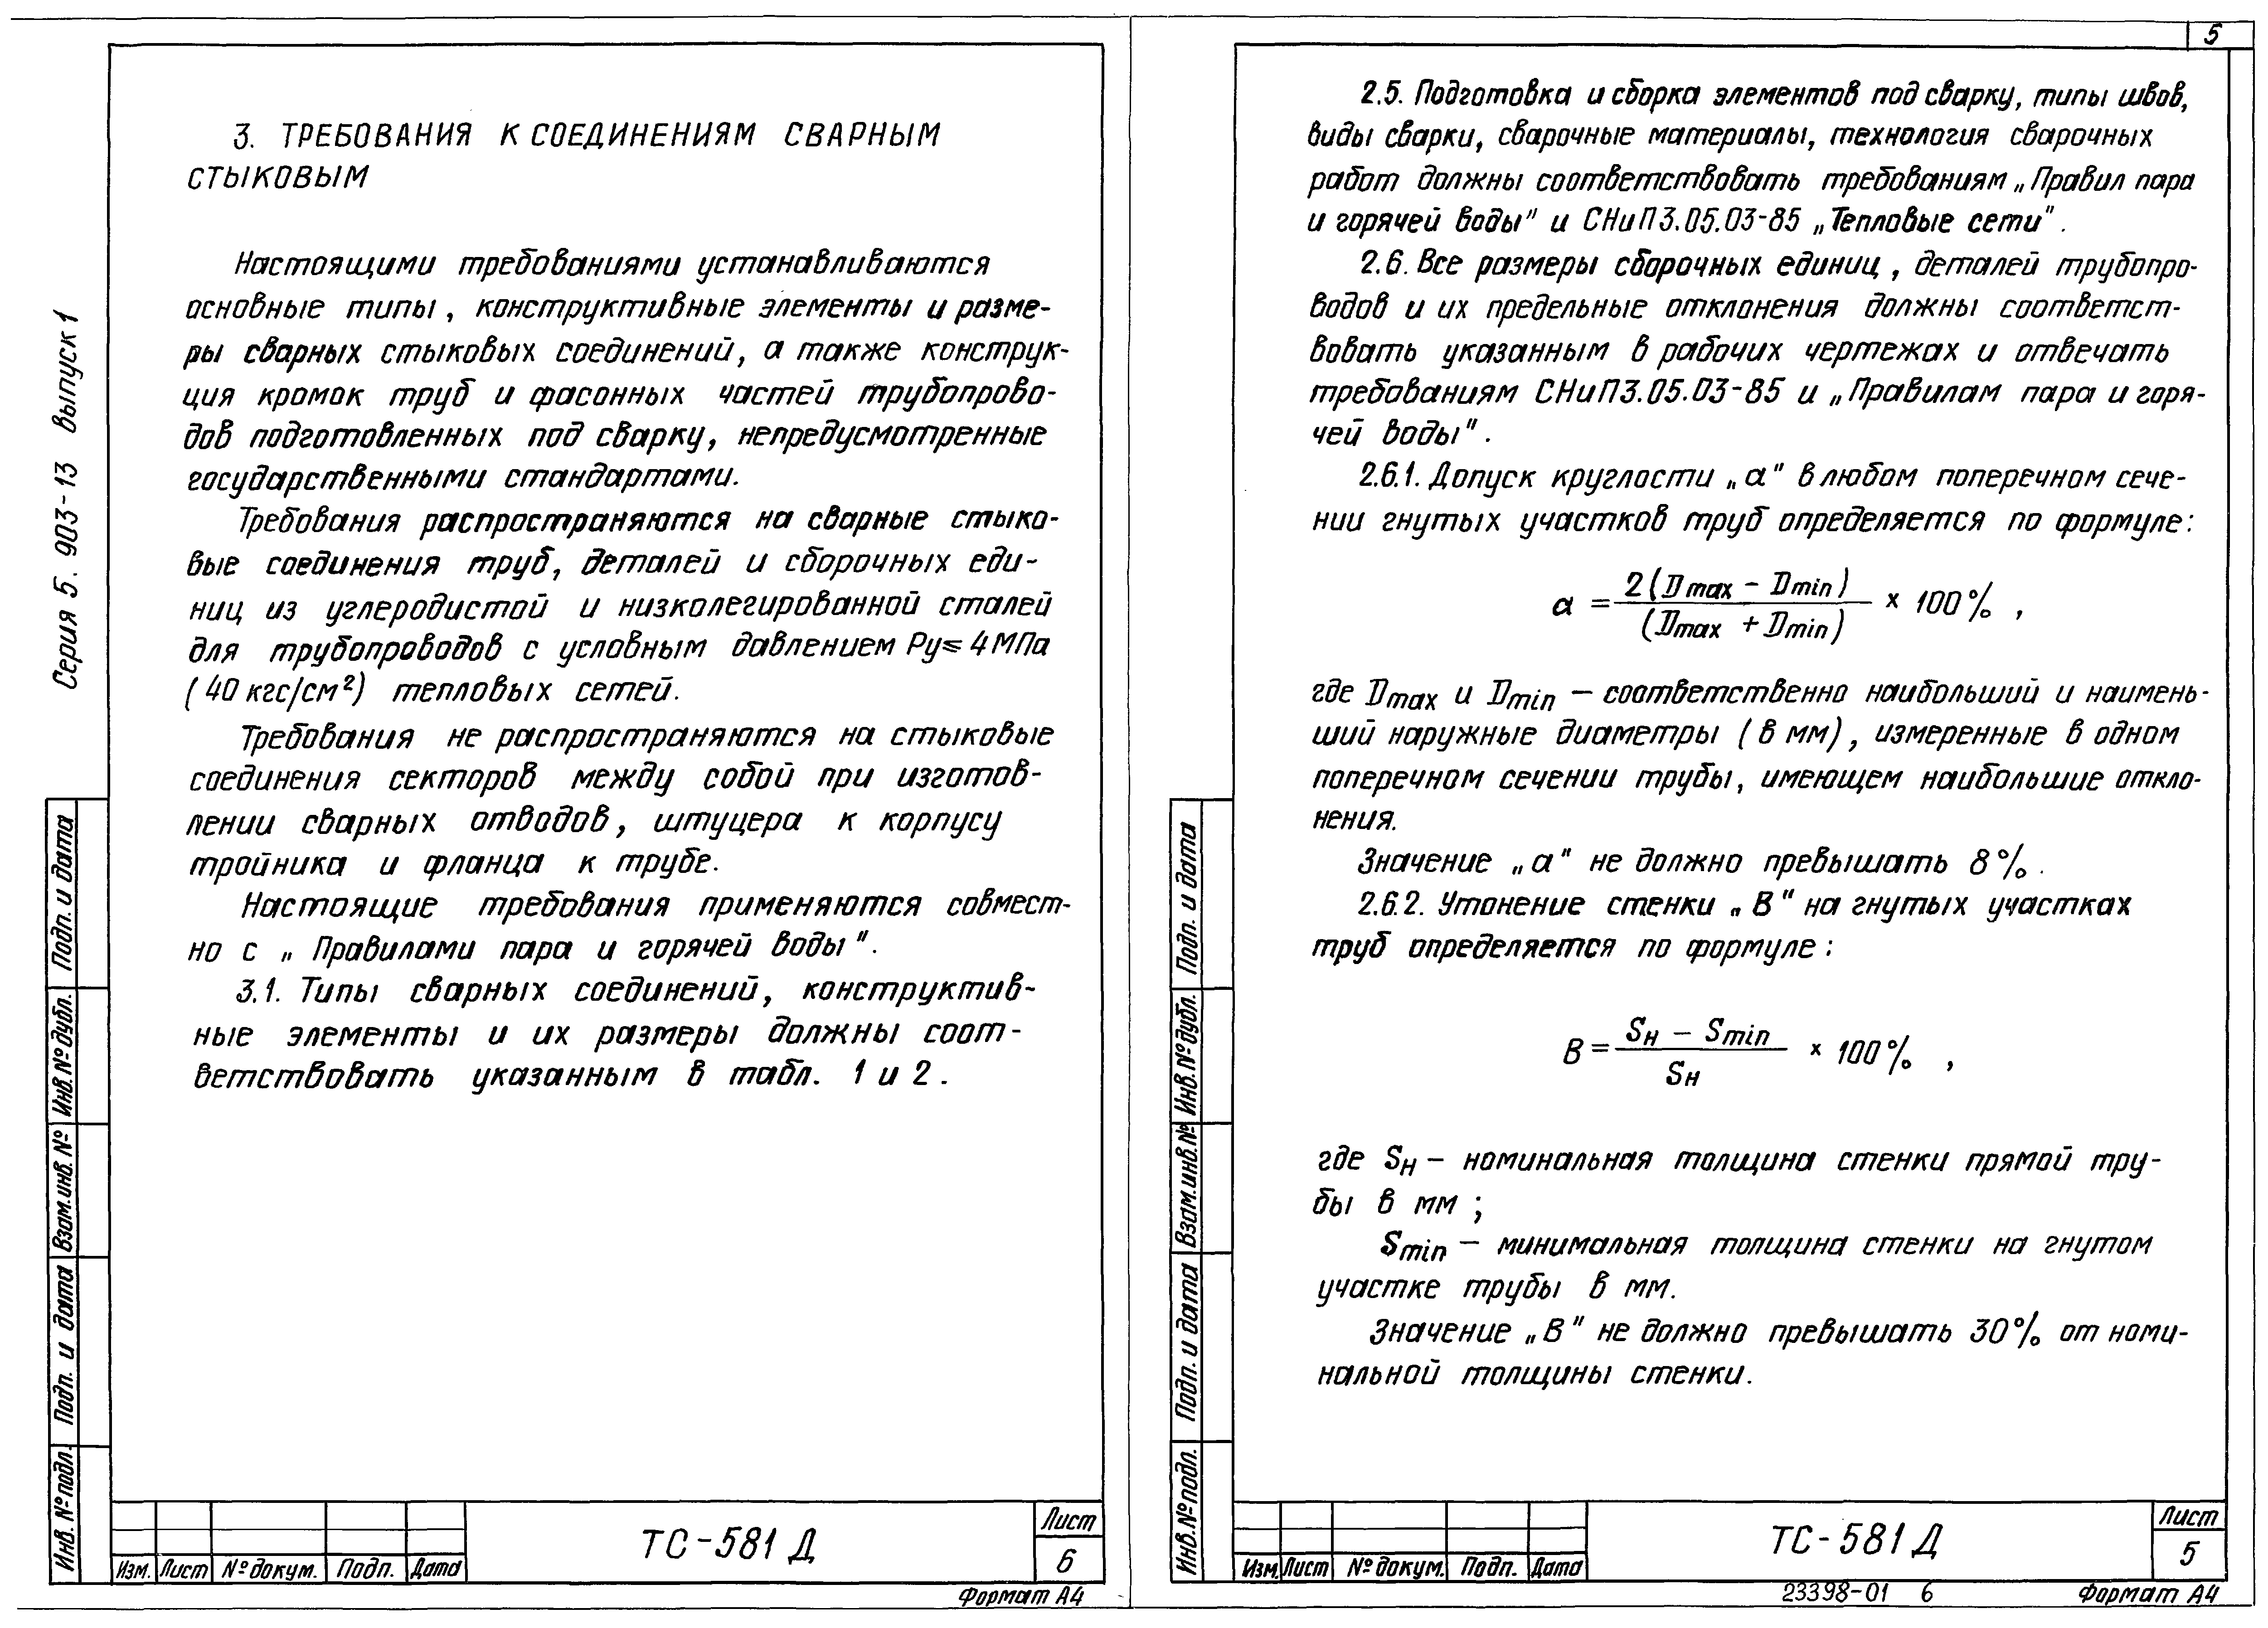 Серия 5.903-13 выпуск 1
3. ТРЕБОВАНИЯ К СОЕДИНЕНИЯМ СВАРНЫМ
СТЫКОВЫМ
Настоящими требованиями устанавливаются
основные типы, конструктивные элементы и разме-
ры сварных стыковых соединений, а также конструк-
ция кромок труб и фасонных частей трубопрово-
дов подготовленных под сварку, непредусмотренные
государственными стандартами.
Требования распространяются на сварные стыко-
вые соединения труб, деталей и сборочных еди-
ниц из углеродистой и низколегированной сталей
для трубопроводов с условным давлением Ру≤4МПа
(40кгс/см²) тепловых сетей.
Требования не распространяются на стыковые
соединения секторов между собой при изготов-
лении сварных отводов, штуцера к корпусу
тройника и фланца к трубе.
Настоящие требования применяются совмест-
но с „Правилами пара и горячей воды".
3.1. Типы сварных соединений, конструктив-
ные элементы и их размеры должны соот-
ветствовать указанным в табл. 1 и 2.
Подп. и дата
Инв.№дубл.
Взам.инв.№
Подп. и дата
Инв.№подл.
Изм. Лист №докум. Подп. Дата
ТС-581Д
Лист
6
Формат А4
5
2.5. Подготовка и сборка элементов под сварку, типы швов,
виды сварки, сварочные материалы, технология сварочных
работ должны соответствовать требованиям „Правил пара
и горячей воды" и СНиП3.05.03-85 „Тепловые сети".
2.6. Все размеры сборочных единиц, деталей трубопро-
водов и их предельные отклонения должны соответст-
вовать указанным в рабочих чертежах и отвечать
требованиям СНиП3.05.03-85 и „Правилам пара и горя-
чей воды".
2.6.1. Допуск круглости „а" в любом поперечном сече-
нии гнутых участков труб определяется по формуле:
а = 2(Dmax - Dmin) / (Dmax + Dmin) × 100%,
где Dmax и Dmin — соответственно наибольший и наимень-
ший наружные диаметры (в мм), измеренные в одном
поперечном сечении трубы, имеющем наибольшие откло-
нения.
Значение „а" не должно превышать 8%.
2.6.2. Утонение стенки „В" на гнутых участках
труб определяется по формуле:
В = Sн - Smin / Sн × 100%,
где Sн — номинальная толщина стенки прямой тру-
бы в мм;
Smin — минимальная толщина стенки на гнутом
участке трубы в мм.
Значение „В" не должно превышать 30% от номи-
нальной толщины стенки.
Подп. и дата
Инв.№дубл.
Взам.инв.№
Подп. и дата
Инв.№подл.
Изм. Лист №докум. Подп. Дата
ТС-581Д
Лист
5
23398-01 6
Формат А4